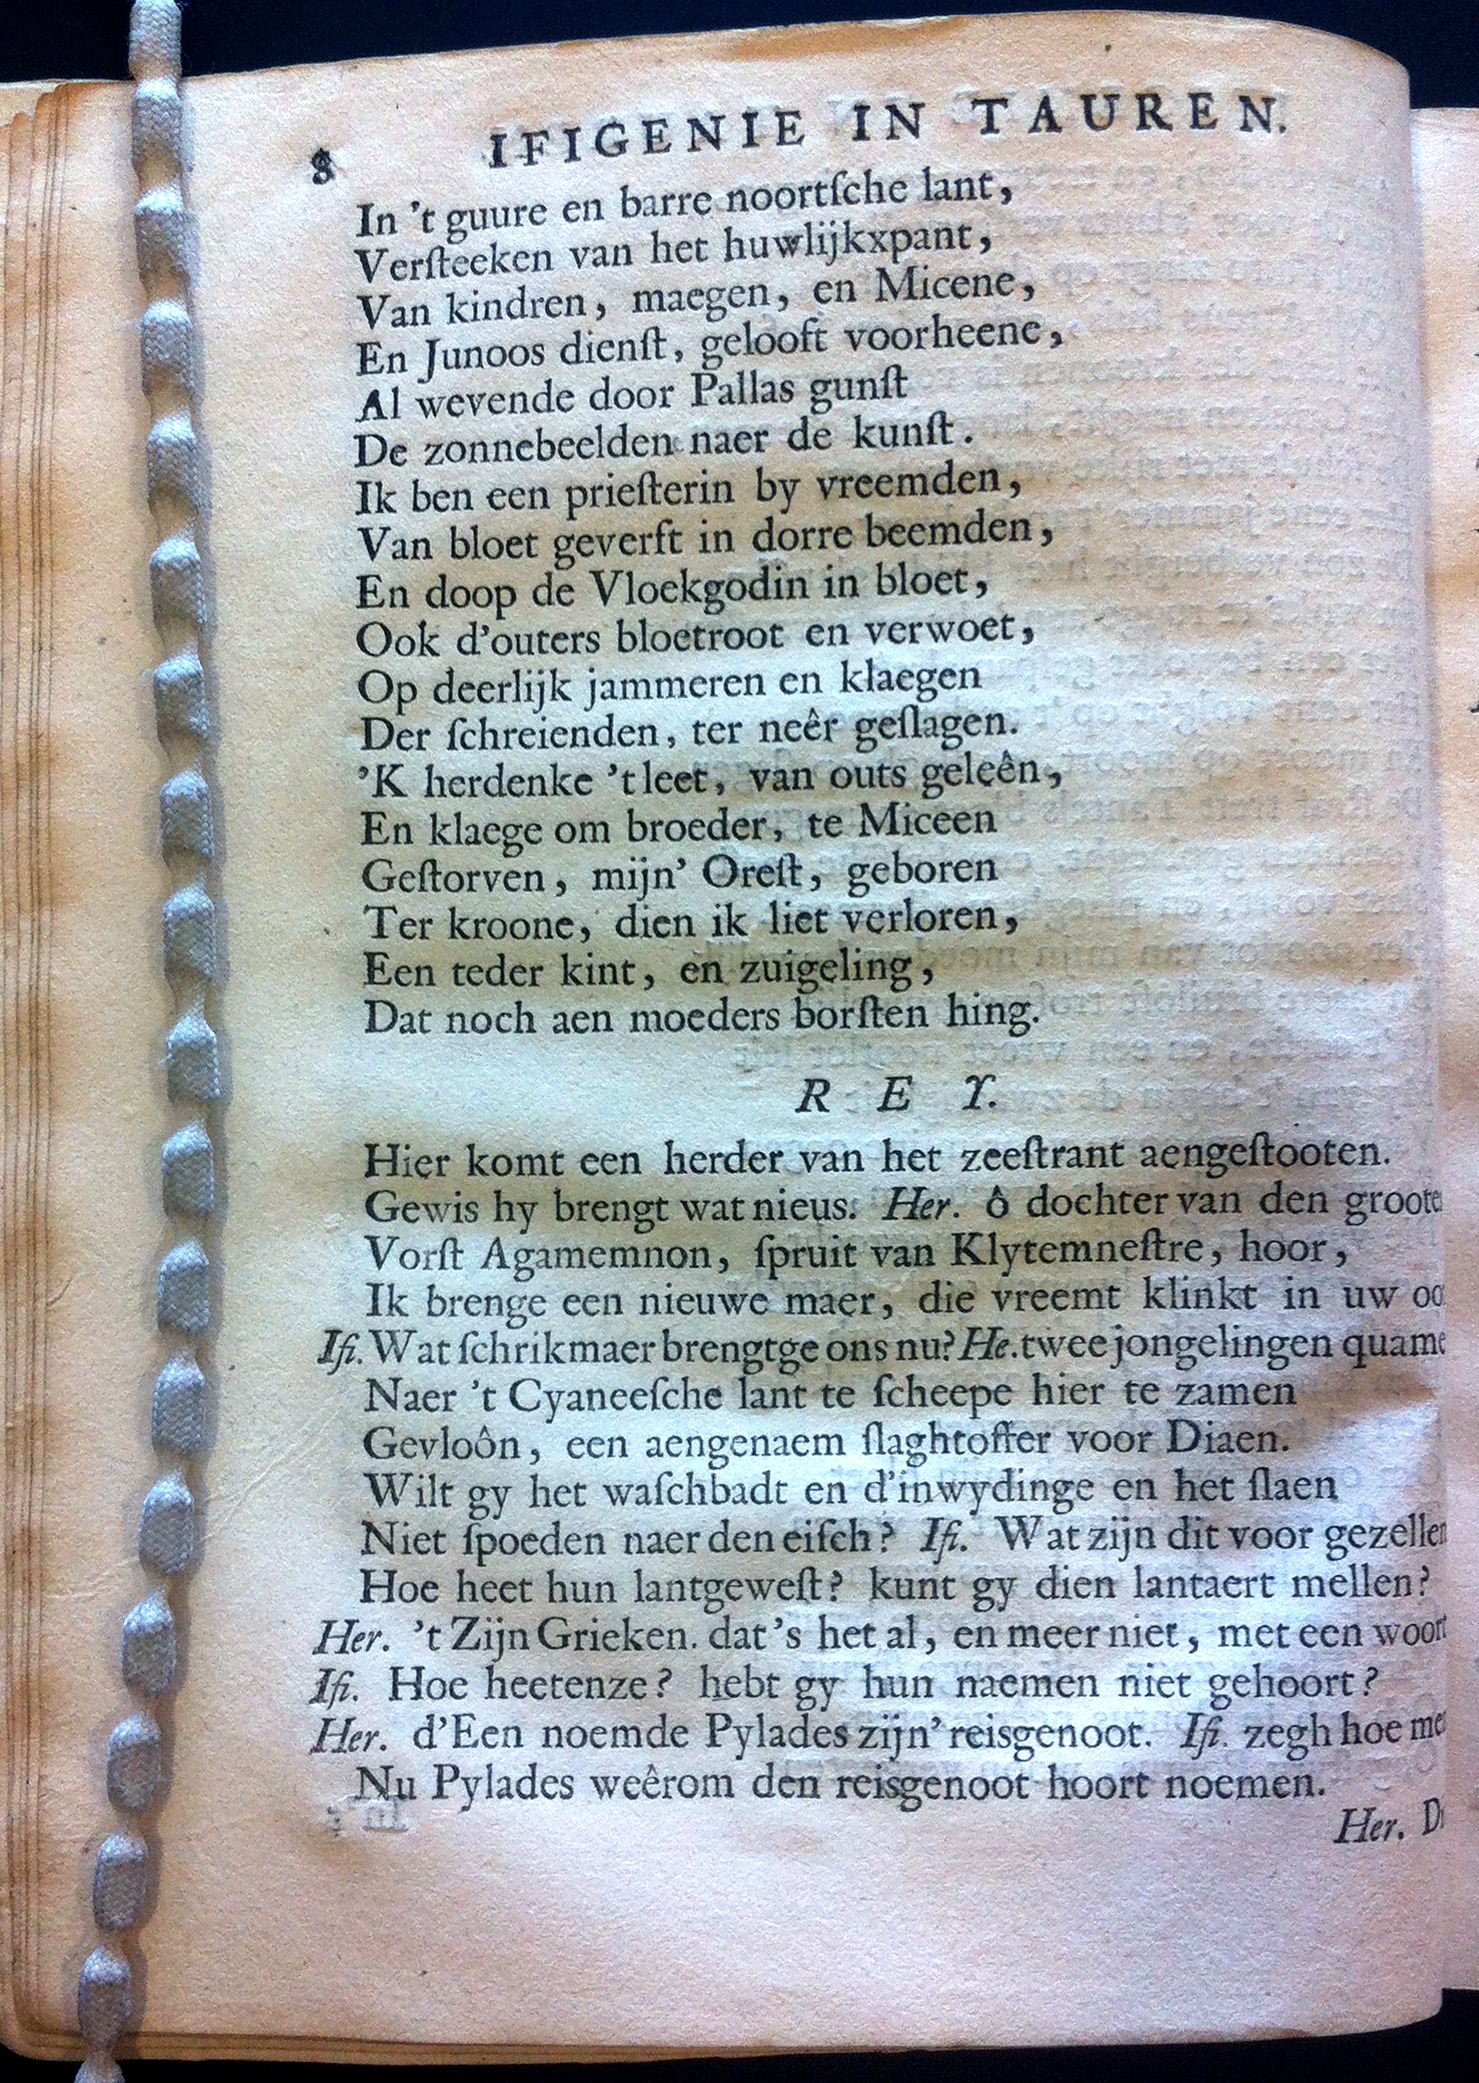 8 IFIGENIE IN TAUREN.
In 't guure en barre noortſche lant,
Verſteeken van het huwlijkxpant,
Van kindren, maegen, en Micene,
En Junoos dienſt, gelooft voorheene,
Al wevende door Pallas gunſt
De zonnebeelden naer de kunſt.
Ik ben een prieſterin by vreemden,
Van bloet geverft in dorre beemden,
En doop de Vloekgodin in bloet,
Ook d'outers bloetroot en verwoet,
Op deerlijk jammeren en klaegen
Der ſchreienden, ter neêr geſlagen.
'K herdenke 't leet, van outs geleên,
En klaege om broeder, te Miceen
Geſtorven, mijn' Oreſt, geboren
Ter kroone, dien ik liet verloren,
Een teder kint, en zuigeling,
Dat noch aen moeders borſten hing.
R E Y.
Hier komt een herder van het zeeſtrant aengeſtooten.
Gewis hy brengt wat nieus. Her. ô dochter van den groote
Vorſt Agamemnon, ſpruit van Klytemneſtre, hoor,
Ik brenge een nieuwe maer, die vreemt klinkt in uw
Ifi. Wat ſchrikmaer brengtge ons nu? He. twee jongelingen quame
Naer 't Cyaneeſche lant te ſcheepe hier te zamen
Gevloôn, een aengenaem ſlaghtoffer voor Diaen.
Wilt gy het waſchbadt en d'inwydinge en het ſlaen
Niet ſpoeden naer den eiſch? Ifi. Wat zijn dit voor gezellen
Hoe heet hun lantgeweſt? kunt gy dien lantaert mellen?
Her. 't Zijn Grieken. dat's het al, en meer niet, met een woort
Ifi. Hoe heetenze? hebt gy hun naemen niet gehoort?
Her. d'Een noemde Pylades zijn' reisgenoot. Ifi. zegh hoe
Nu Pylades weêrom den reisgenoot hoort noemen.
Her.